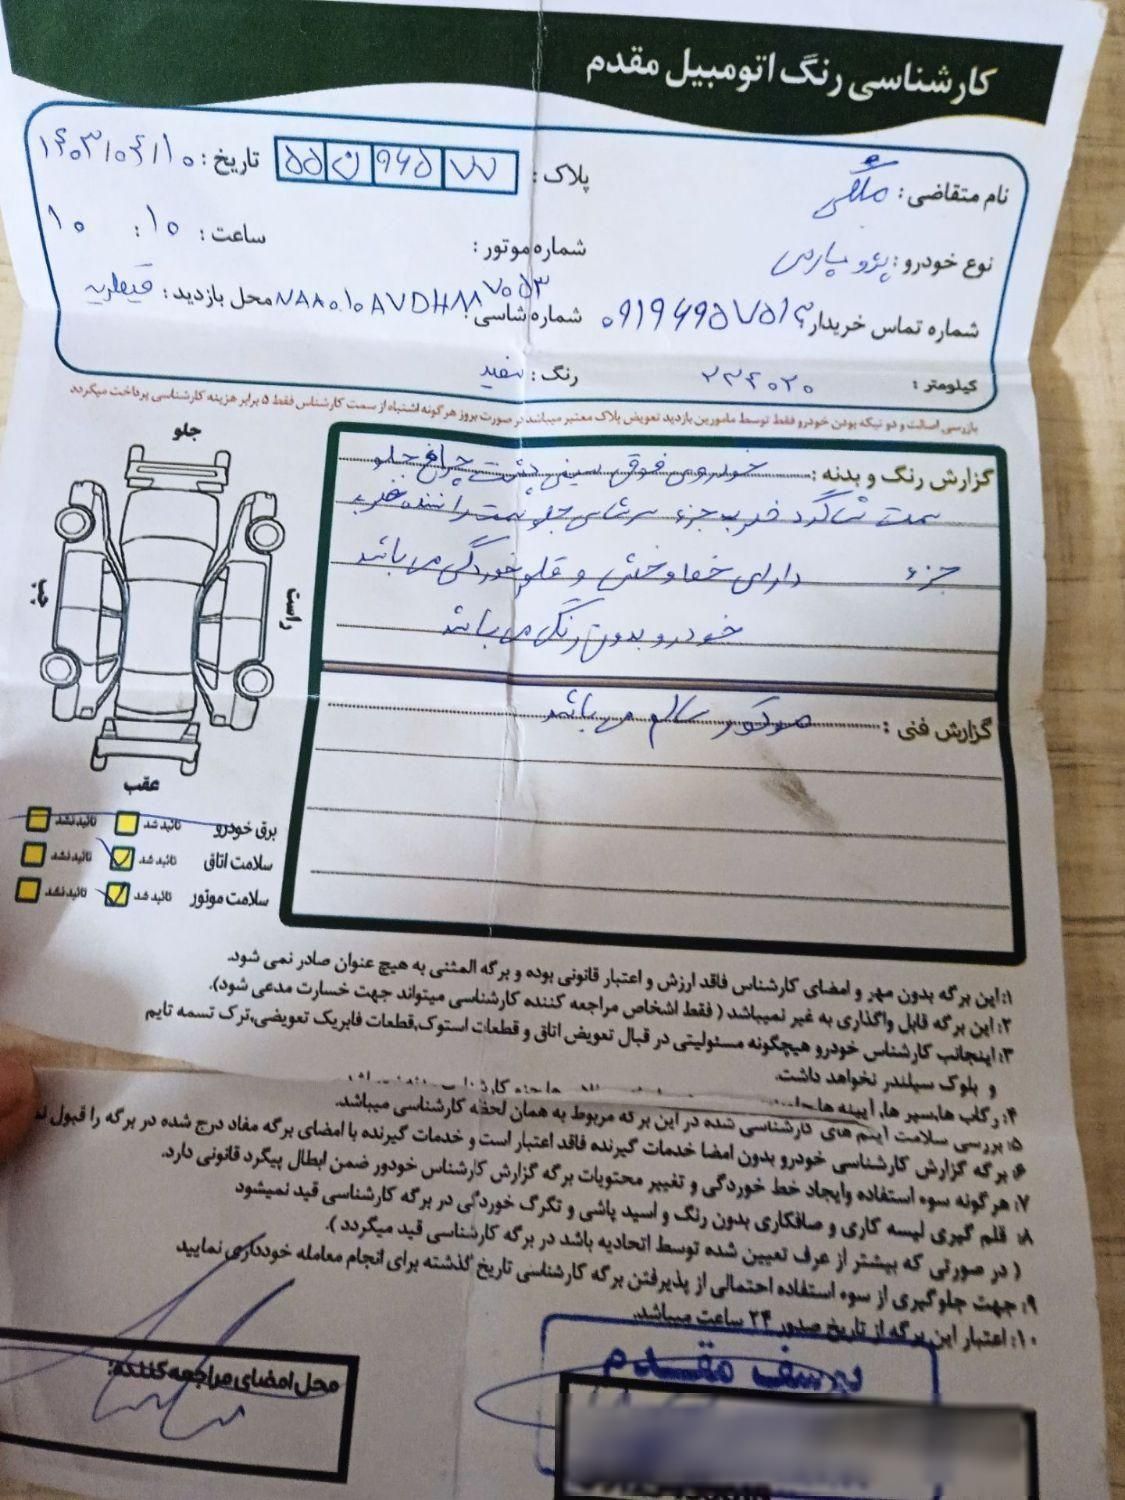 کارشناسی رنگ اتومبیل مقدم
نام متقاضی: ملکی
پلاک: ۷۷ ۹۶۵ ن ۵۵
تاریخ: ۱۴۰۳/۰۶/۱۰
نوع خودرو: پژو پارس
شماره موتور:
ساعت: ۱۰ : ۱۰
شماره تماس خریدار:
شماره شاسی:
محل بازدید: قیطریه
کیلومتر:
رنگ: سفید
بازرسی اصالت و دو تیکه بودن خودرو فقط توسط مامورین بازدید تعویض پلاک معتبر میباشد در صورت بروز هرگونه اشتباه از سمت کارشناس فقط ۵ برابر هزینه کارشناسی پرداخت میگردد
جلو
چپ
راست
عقب
گزارش رنگ و بدنه: خودروی فوق سینی پشت چراغ جلو
سمت شاگرد ضربه جزء سرشاسی جلو سمت راننده ضربه
جزء دارای خط و خش و قلم خوردگی می باشد
خودرو بدون رنگ می باشد
گزارش فنی: موتور سالم می باشد
برق خودرو تائید شد تائید نشد
سلامت اتاق تائید شد تائید نشد
سلامت موتور تائید شد تائید نشد
۱: این برگه بدون مهر و امضای کارشناس فاقد ارزش و اعتبار قانونی بوده و برگه المثنی به هیچ عنوان صادر نمی شود.
۲: این برگه قابل واگذاری به غیر نمیباشد ( فقط اشخاص مراجعه کننده کارشناسی میتواند جهت خسارت مدعی شود).
۳: اینجانب کارشناس خودرو هیچگونه مسئولیتی در قبال تعویض اتاق و قطعات استوک,قطعات فابریک تعویضی,ترک تسمه تایم
و بلوک سیلندر نخواهد داشت.
۴: رکاب ها,سپر ها, آیینه ها
۵: بررسی سلامت آیتم های کارشناسی شده در این برگه مربوط به همان لحظه کارشناسی میباشد.
۶: برگه گزارش کارشناسی خودرو بدون امضا خدمات گیرنده فاقد اعتبار است و خدمات گیرنده با امضای برگه مفاد درج شده در برگه را قبول
۷: هرگونه سوء استفاده وایجاد خط خوردگی و تغییر محتویات برگه گزارش کارشناس خودور ضمن ابطال پیگرد قانونی دارد.
۸: قلم گیری لیسه کاری و صافکاری بدون رنگ و اسید پاشی و تگرگ خوردگی در برگه کارشناسی قید نمیشود
( در صورتی که بیشتر از عرف تعیین شده توسط اتحادیه باشد در برگه کارشناسی قید میگردد ).
۹: جهت جلوگیری از سوء استفاده احتمالی از پذیرفتن برگه کارشناسی تاریخ گذشته برای انجام معامله خودداری نمایید
۱۰: اعتبار این برگه از تاریخ صدور ۲۴ ساعت میباشد.
محل امضای مراجعه کننده:
یوسف مقدم